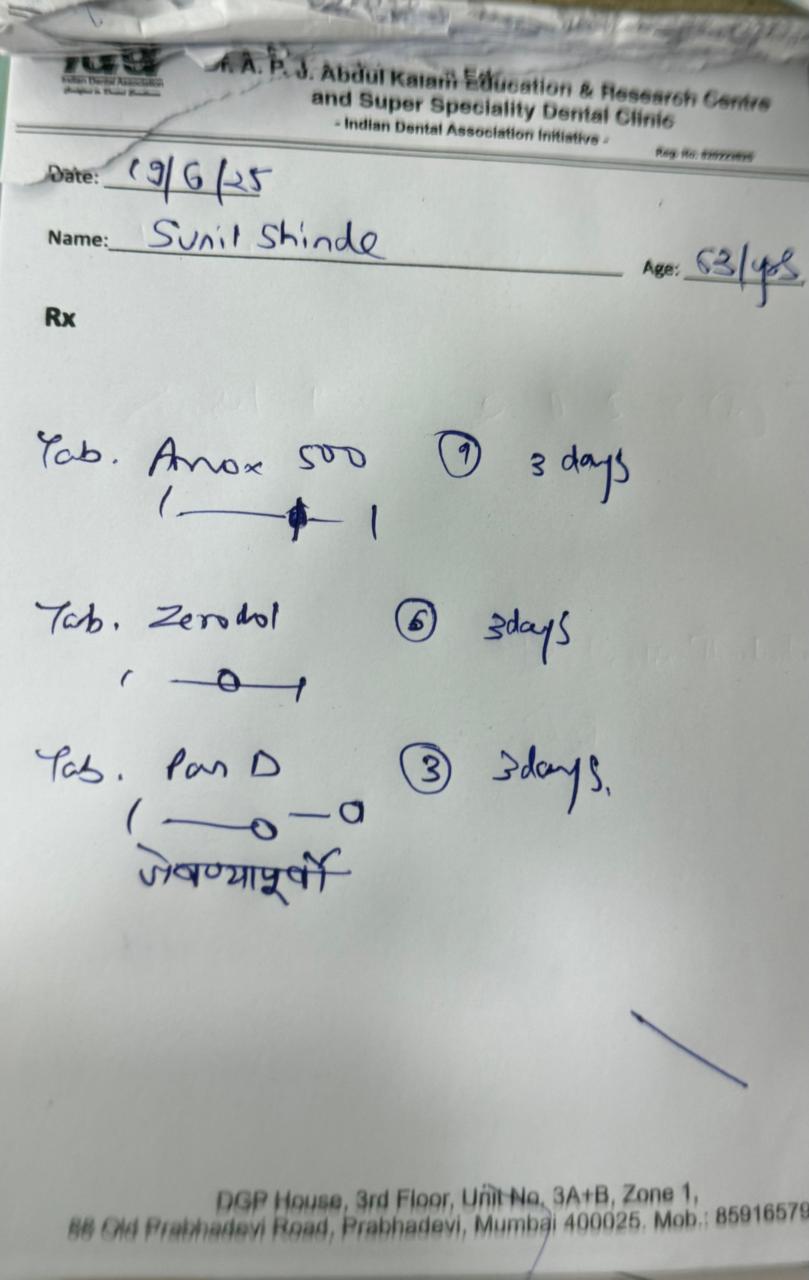 Indian Dental Association
A. P. J. Abdul Kalam Education & Research Centre
and Super Speciality Dental Clinic
- Indian Dental Association Initiative -
Reg. No.
Date: 19/6/25
Name: Sunil Shinde
Age: 63/yrs
Rx
Tab. Amox 500 ⑨ 3 days
1 — 1 — 1
Tab. Zerodol ⑥ 3days
1 — 0 — 1
Tab. Pan D ③ 3days.
1 — 0 — 0
जेवण्यापूर्वी
DGP House, 3rd Floor, Unit No. 3A+B, Zone 1,
88 Old Prabhadevi Road, Prabhadevi, Mumbai 400025. Mob.: 85916579